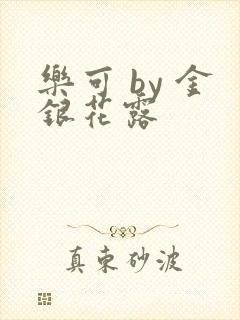 樂可 by 金
銀花露
真東砂波